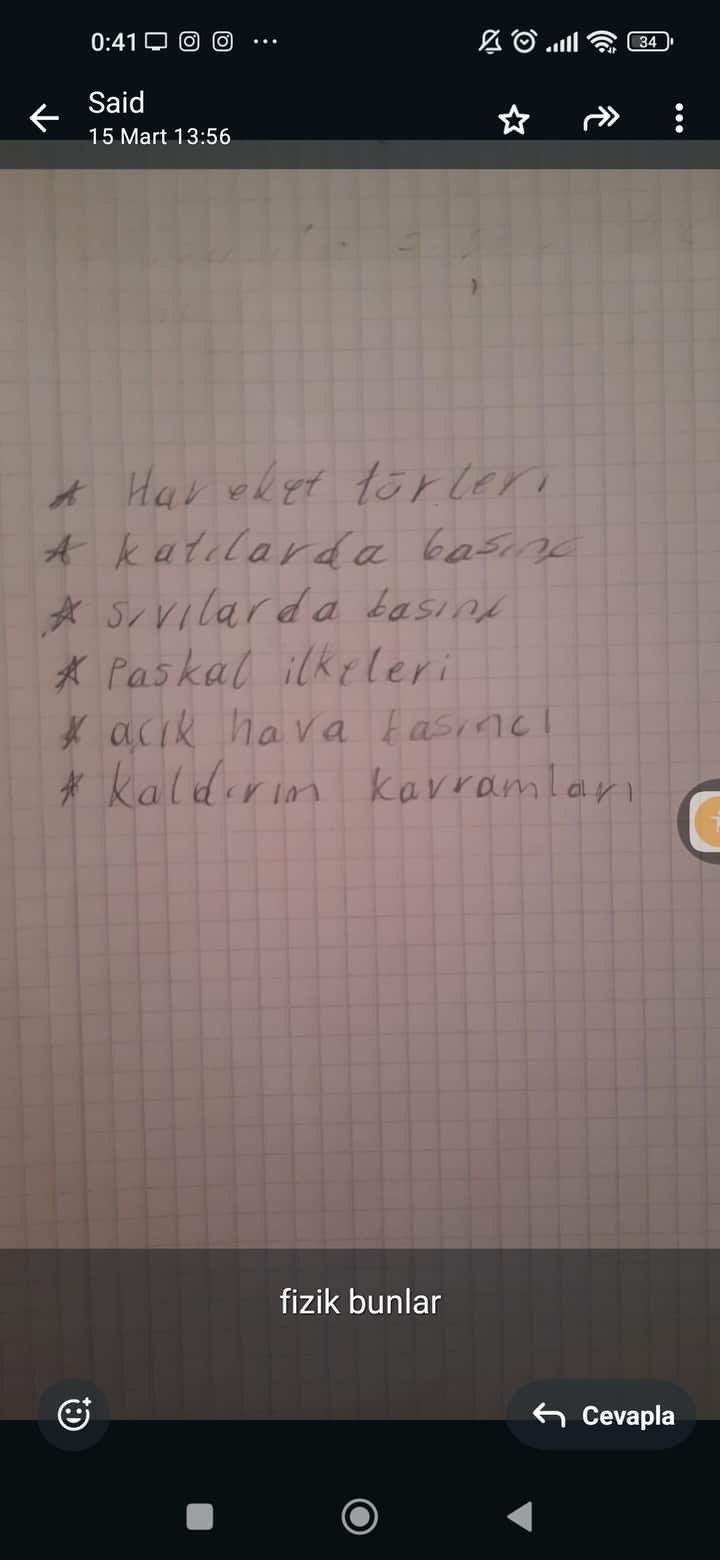 0:41 ...
34
Said
15 Mart 13:56
* Hareket türleri
* katılarda basınç
* sıvılarda basınç
* Paskal ilkeleri
* açık hava basıncı
* kaldırım kavramları
fizik bunlar
Cevapla